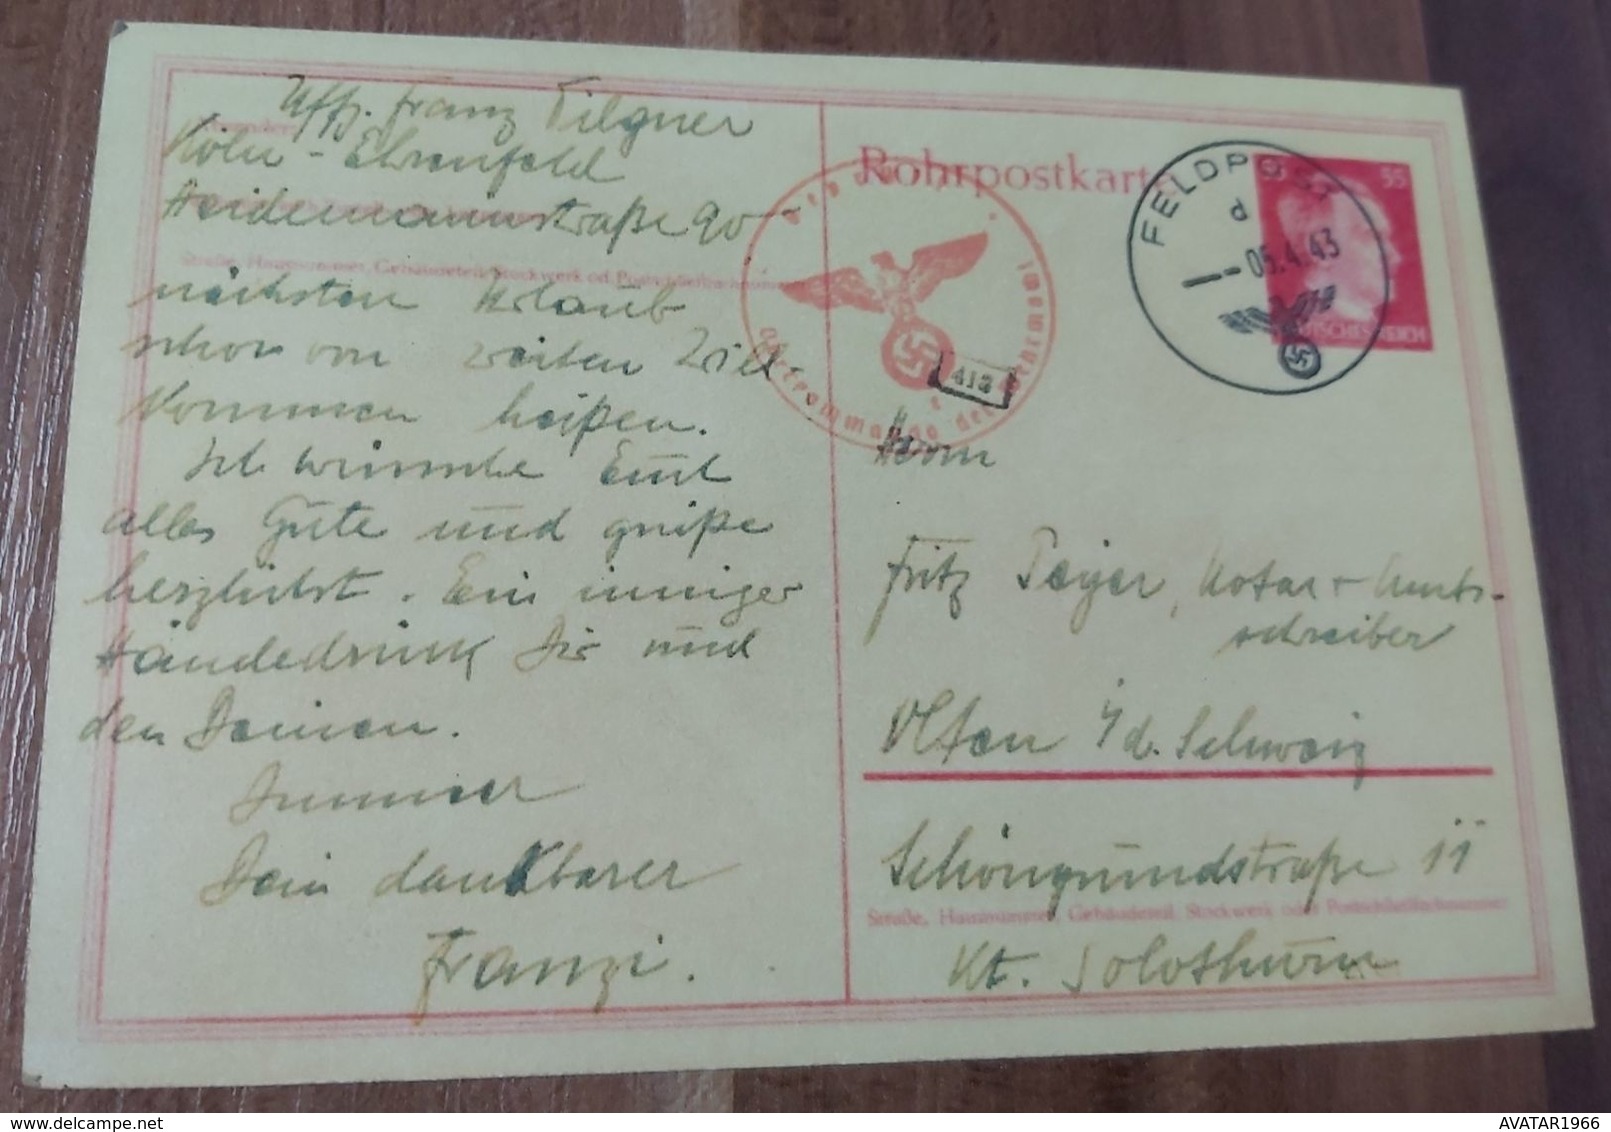 Uffz. Franz Tilgner
Köln - Ehrenfeld
Heidemannstraße 90
Straße, Hausnummer, Gebäudeteil, Stockwerk od. Postschließfachnummer
nächsten Urlaub
schon von weiten Will-
kommen heißen.
Ich wünsche Euch
alles Gute und grüße
herzlichst. Ein inniger
Händedrück Dir und
den Deinen.
Immer
Dein dankbarer
Franzi.
Rohrpostkarte
FELDPOST
d
- 05.4.43
55
DEUTSCHES REICH
Oberkommando der Wehrmacht
413
Herrn
Fritz Peyer, Notar + Amts-
schreiber
Olten i/d. Schweiz
Schöngrundstraße 11
Straße, Hausnummer, Gebäudeteil, Stockwerk oder Postschließfachnummer
Kt. Solothurn
AVATAR1966